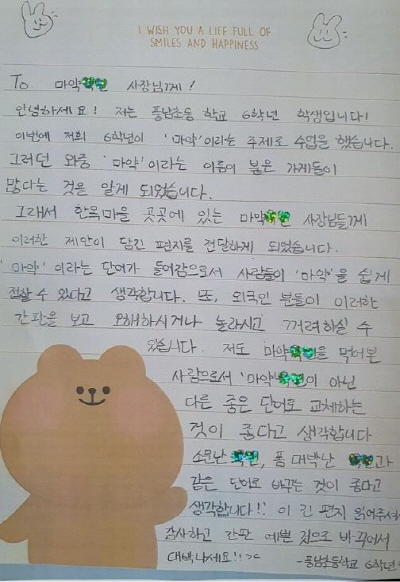 I WISH YOU A LIFE FULL OF
SMILES AND HAPPINESS
To 마약 사장님께!
안녕하세요! 저는 풍남초등 학교 6학년 학생입니다!
이번에 저희 6학년이 '마약'이라는 주제로 수업을 했습니다.
그러던 와중 '마약'이라는 이름이 붙은 가게들이
많다는 것을 알게 되었습니다.
그래서 한옥마을 곳곳에 있는 마약 사장님들께
이러한 제안이 담긴 편지를 전달하게 되었습니다.
'마약'이라는 단어가 들어감으로서 사람들이 '마약'을 쉽게
접할 수 있다고 생각합니다. 또, 외국인 분들이 이러한
간판을 보고 오해하시거나 놀라시고 꺼려하실 수
있습니다. 저도 마약을 먹어본
사람으로서 '마약이 아닌
다른 좋은 단어로 교체하는
것이 좋다고 생각합니다
소문난 , 폼 대박난 과
같은 단어로 바꾸는 것이 좋다고
생각합니다!! 이 긴 편지 읽어주셔서
감사하고 간판 예쁜 것으로 바꾸어서
대박나세요!! ><
-풍남초등학교 6학년